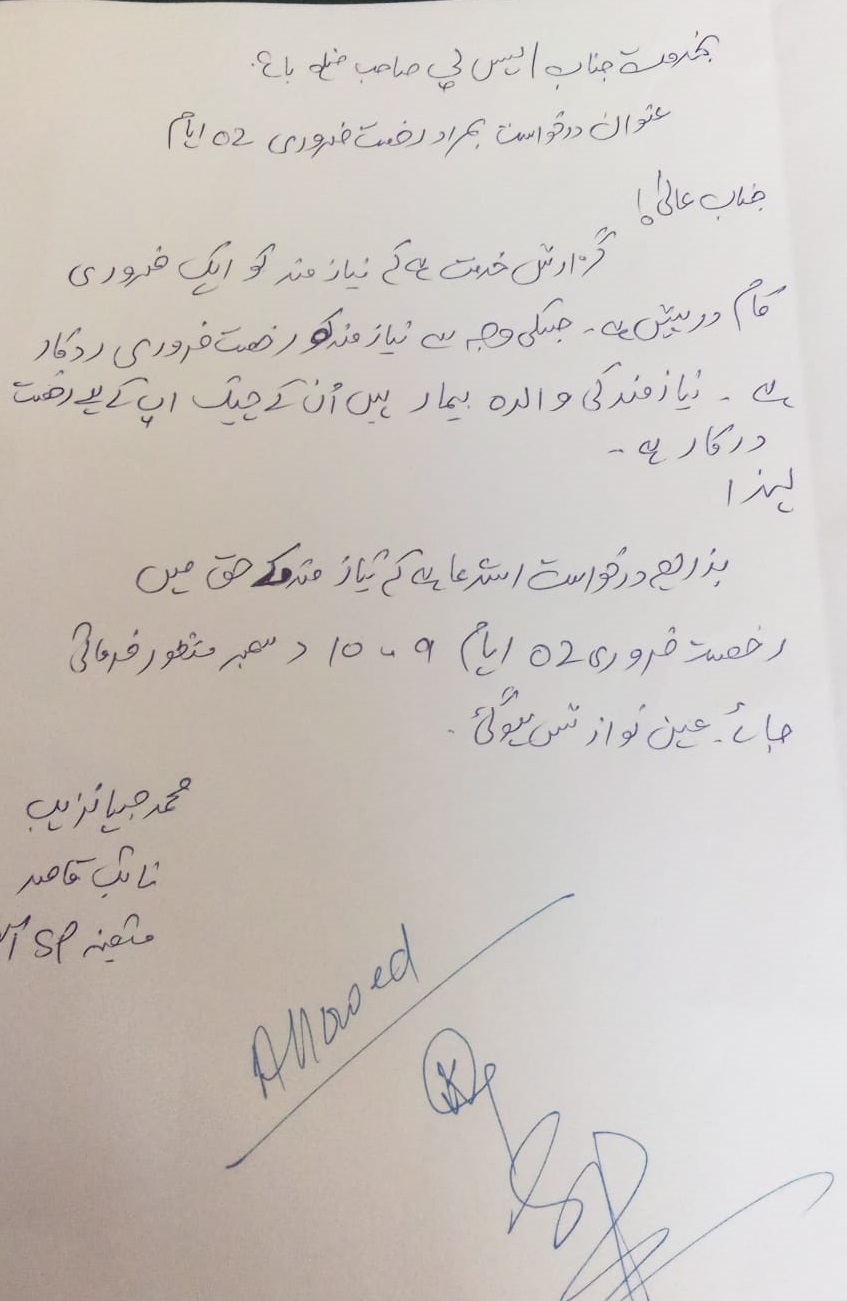 بخدمت جناب ایس پی صاحب ضلع باغ۔
عنوان درخواست بمراد رخصت ضروری 02 ایام
جناب عالی!
گزارش خدمت ہے کہ نیاز مند کو ایک ضروری
کام درپیش ہے۔ جسکی وجہ سے نیاز مند کو رخصت ضروری ردکار
ہے ۔ نیاز مند کی والدہ بیمار ہیں اُن کے چیک اپ کے لیے رخصت
درکار ہے ۔
لہذا
بذریعہ درخواست استدعا ہے کہ نیاز مند کے حق میں
رخصت ضروری 02 ایام 9 ، 10 دسمبر منظور فرمائی
جائے۔ عین نوازش ہوگی۔
محمد جہانزیب
نائب قاصد
متعینہ SP
Allowed